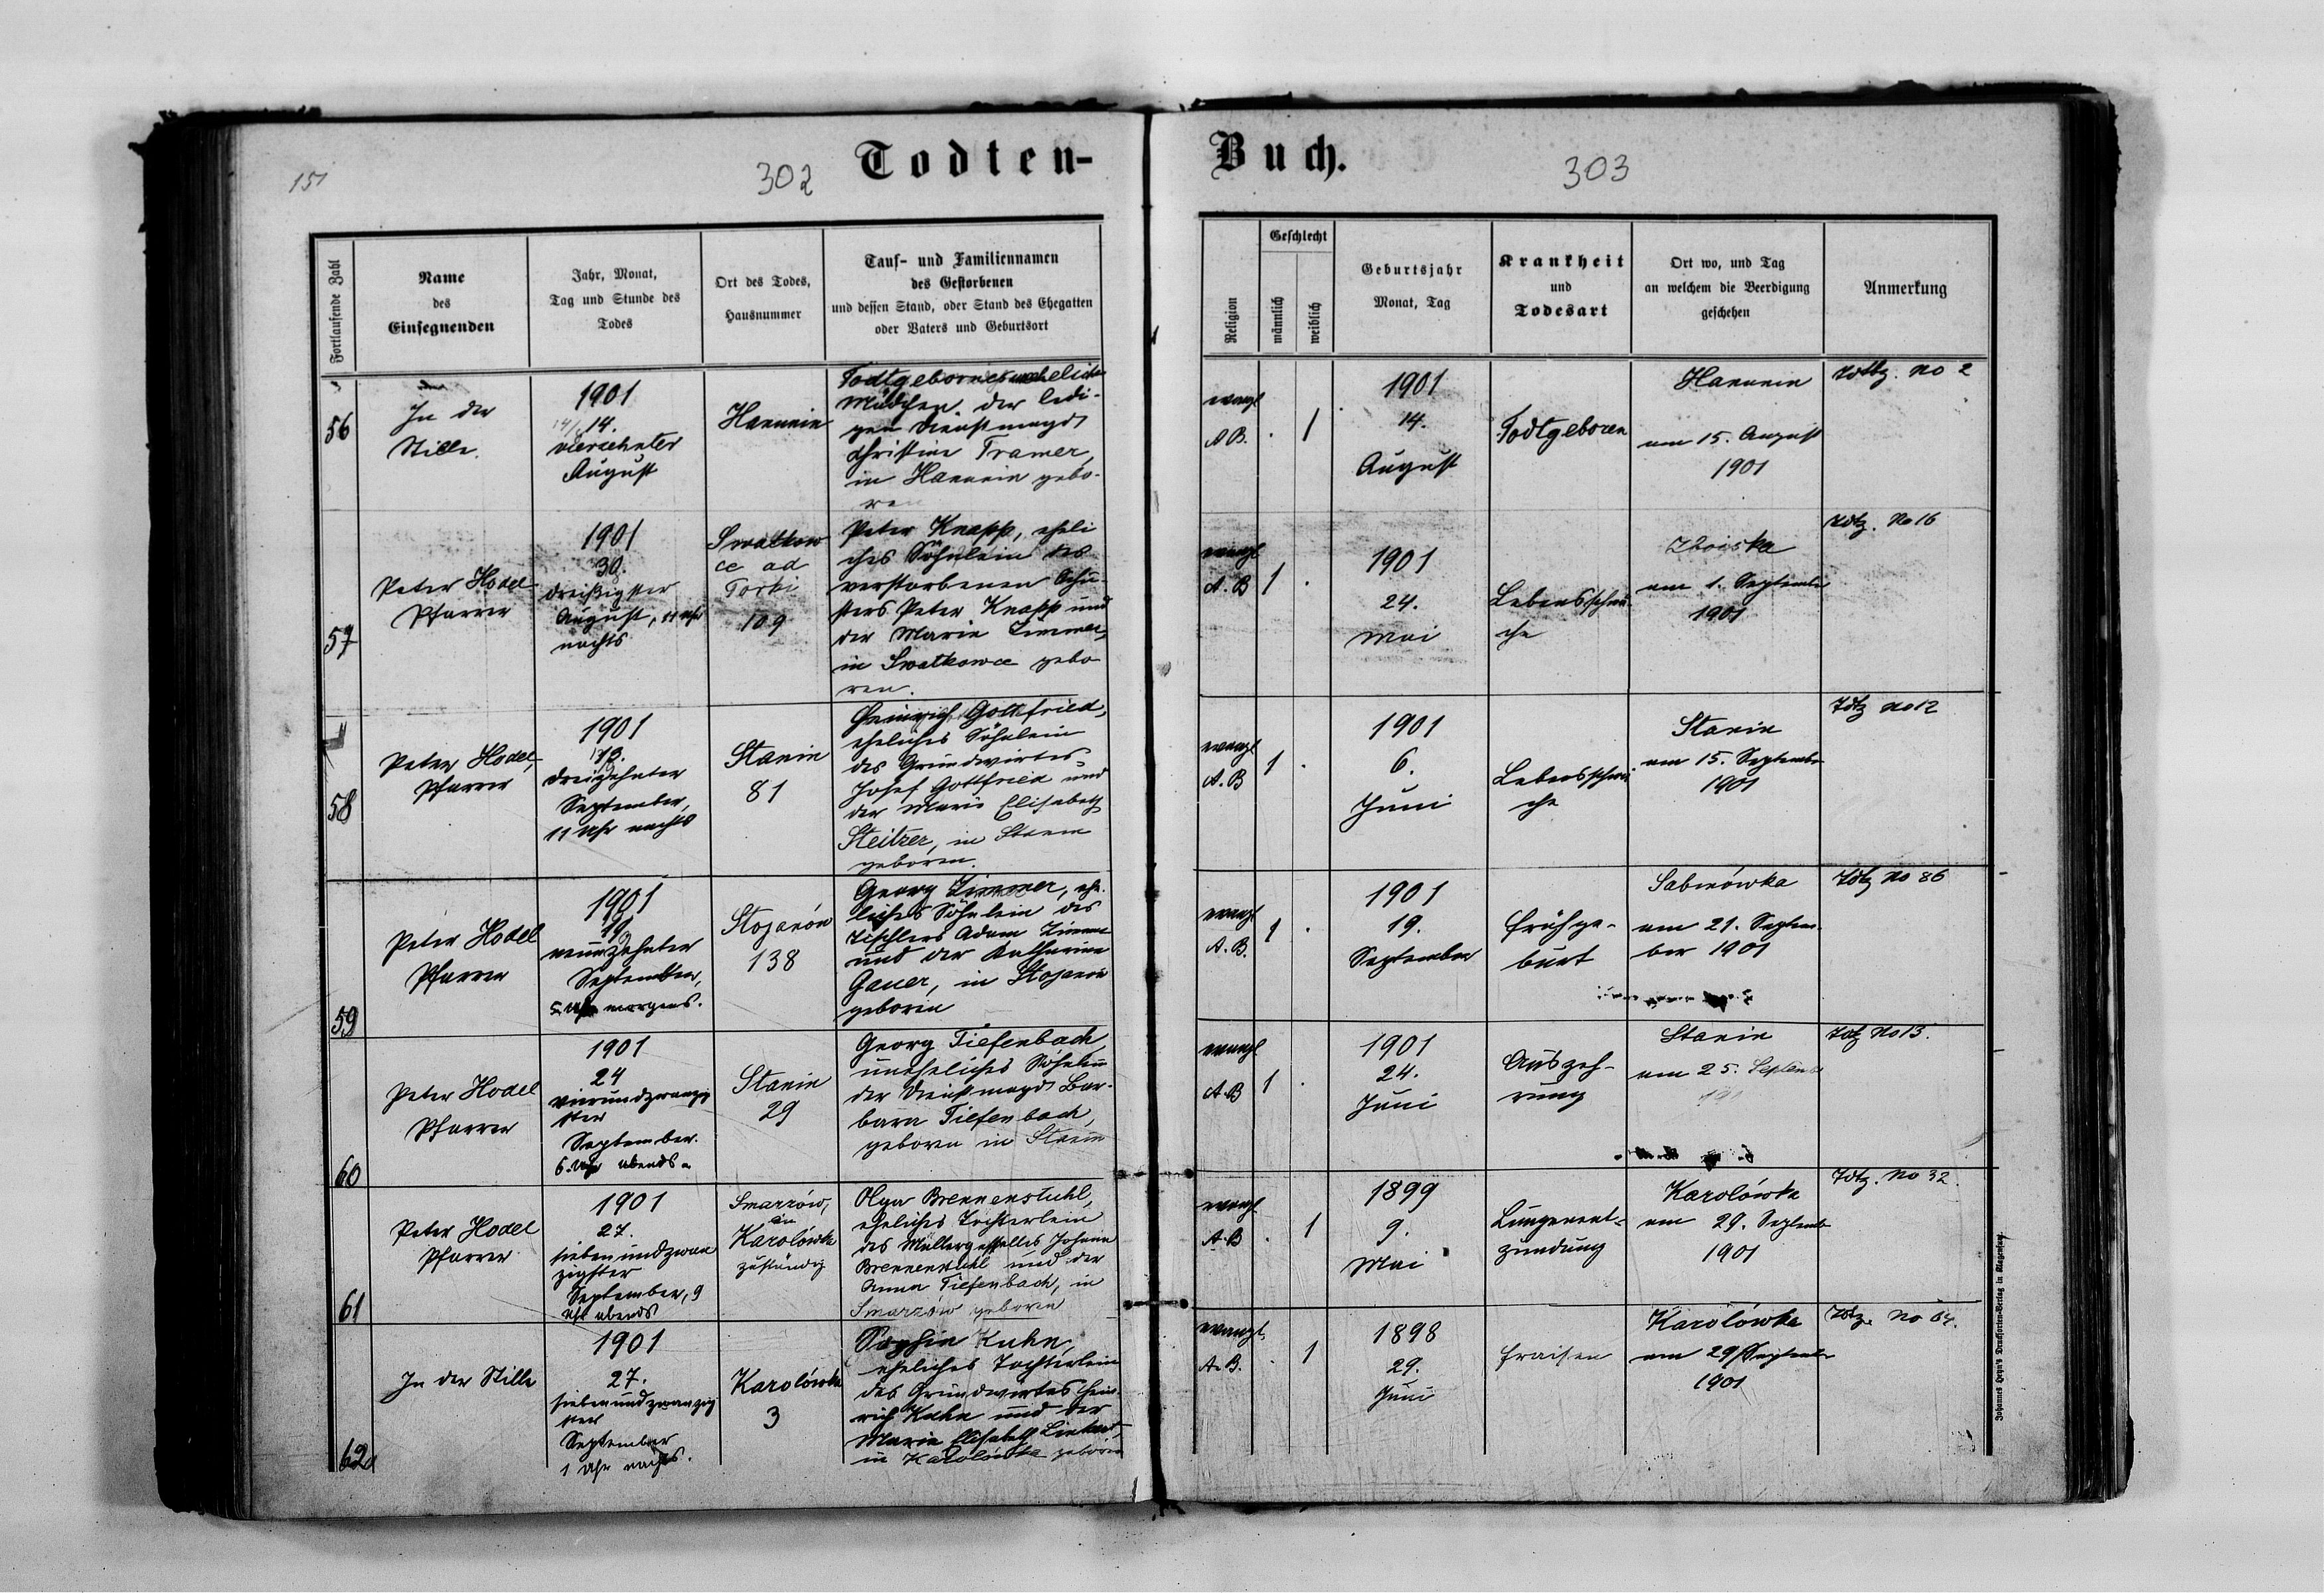 151
302
Todten-
Fortlaufende Zahl
Name
des
Einsegnenden
Jahr, Monat,
Tag und Stunde des
Todes
Ort des Todes,
Hausnummer
Tauf- und Familiennamen
des Gestorbenen
und dessen Stand, oder Stand des Ehegatten
oder Vaters und Geburtsort
56
In der
Stille.
1901
14.
vierzehnter
August
Hanunin
Todtgebornes unehelich
Mädchen der ledi-
gen Dienstmagd
Christine Tramer,
in Hanunin gebo-
ren
57
Peter Hodel
Pfarrer
1901
30.
dreißigster
August, 11 Uhr
nachts
Swatkow
ce ad
Torki
109
Peter Knapp, eheli
ches Söhnlein des
verstorbenen Schu-
sters Peter Knapp und
der Maria Zimmer,
in Swatkowce gebo
ren.
58
Peter Hodel,
Pfarrer
1901
13.
dreizehnter
September,
11 Uhr nachts
Stanin
81
Heinrich Gottfried,
eheliches Söhnlein
des Grundwirtes
Josef Gottfried und
der Maria Elisabeth
Steitzer, in Stanin
geboren.
59
Peter Hodel
Pfarrer
1901
19.
neunzehnter
September,
5 Uhr morgens.
Stojanów
138
Georg Zimmer, ehe-
liches Söhnlein des
Tischlers Adam Zimmer
und der Katharina
Gauer, in Stojanów
geboren
60
Peter Hodel
Pfarrer
1901
24
vierundzwanzig
ster
September.
6. Uhr abends.
Stanin
29
Georg Tiefenbach,
uneheliches Söhnlein
der Dienstmagd Bar-
bara Tiefenbach,
geboren in Stanin
61
Peter Hodel
Pfarrer
1901
27.
siebenundzwan
zigster
September, 9
Uhr abends
Smarzów,
in
Karolówka
zuständig
Olga Brennenstuhl,
eheliches Töchterlein
des Müllergesselles Johann
Brennenstuhl und der
Anna Tiefenbach, in
Smarzów geboren
62
In der Stille
1901
27.
siebenundzwanzig
ster
September
1 Uhr nachts.
Karolówka
3
Sophie Kuhn,
eheliches Töchterlein
des Grundwirtes Hein-
rich Kuhn und der
Maria Elisabeth
in Karolówka geboren
Buch.
303
Religion
Geschlecht
männlich
weiblich
Geburtsjahr
Monat, Tag
Krankheit
und
Todesart
Ort wo, und Tag
an welchem die Beerdigung
geschehen
Anmerkung
evangl
A B.
. 1
1901
14.
August
Todtgeboren
Hanunin
am 15. August
1901
No 2
evangl
A. B
1 .
1901
24.
Mai
Lebensschwä
che
Zboiska
am 1. September
1901
Tdtz. No 16
evangl
A. B
1 .
1901
6.
Juni
Lebensschwä
che
Stanin
am 15. September
1901
Tdtz No 12
evangl
A. B.
1 .
1901
19.
September
Frühge-
burt
Sabinówka
am 21. Septem-
ber 1901
Tdtz No 86
evangl
A B
1 .
1901
24.
Juni
Auszeh-
rung
Stanin
am 25. September
Tdtz No 13.
evangl.
A. B
. 1
1899
9.
Mai
Lungenent-
zündung
Karolówka
am 29. September
1901
Tdtz. No 32
evangl.
A. B.
. 1
1898
29.
Juni
Fraisen
Karolówka
am 29 September
1901
Tdtz. No 64.
Johannes Heyn's Drucksorten-Verlag in Klagenfurt.